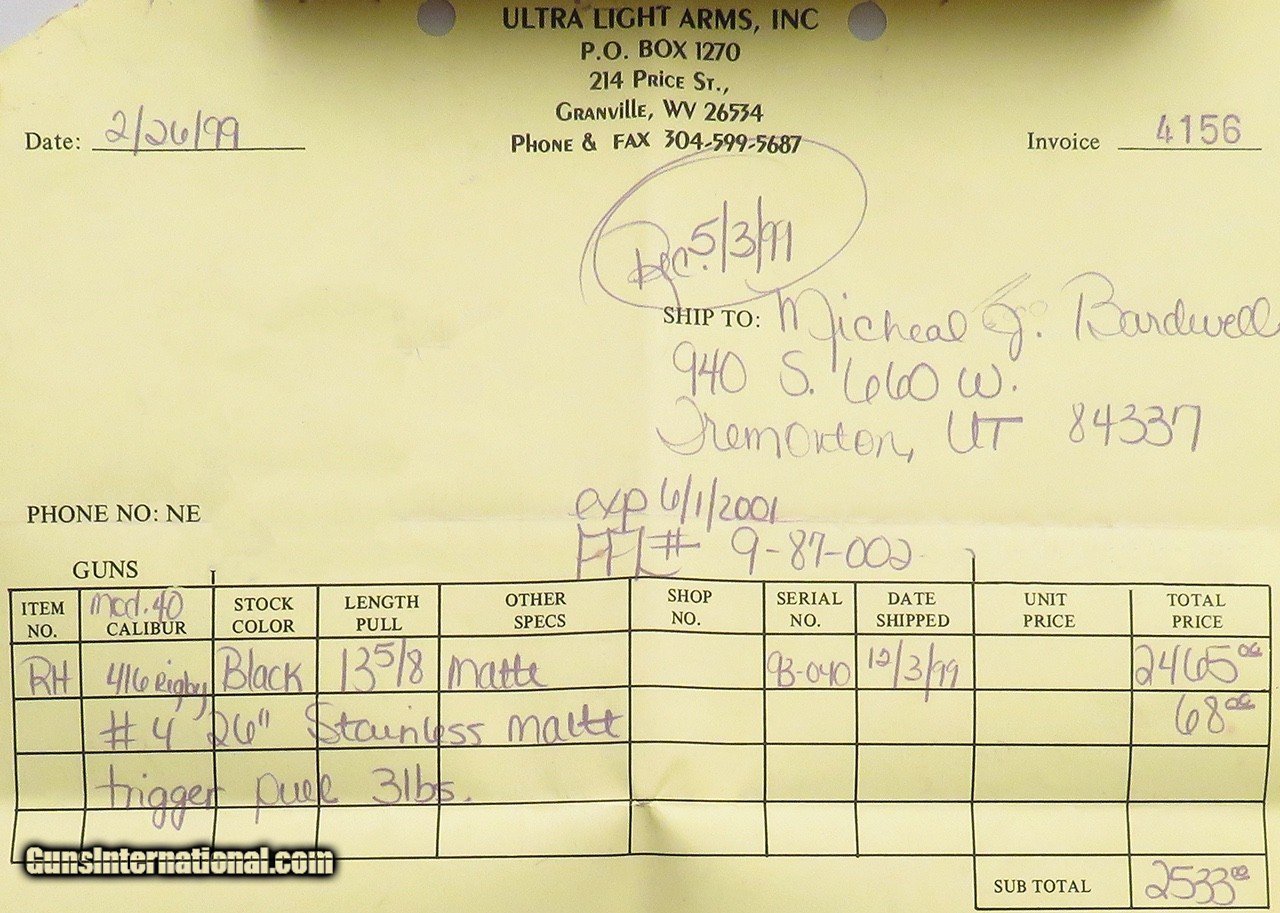 ULTRA LIGHT ARMS, INC
P.O. BOX 1270
214 PRICE ST.,
GRANVILLE, WV 26534
PHONE & FAX 304-599-5687
Date: 2/26/99
Invoice 4156
Rec. 5/3/99
SHIP TO: Micheal J. Bardwell
940 S. 660 W.
Tremonton, UT 84337
PHONE NO: NE
exp 6/1/2001
FFL# 9-87-002
GUNS
ITEM NO. Mod. 40 CALIBUR STOCK COLOR LENGTH PULL OTHER SPECS SHOP NO. SERIAL NO. DATE SHIPPED UNIT PRICE TOTAL PRICE
RH 416 Rigby Black 13 5/8 Matte 93-040 12/3/99 2465 00
#4 26" Stainless matte 68 00
trigger pull 3lbs.
SUB TOTAL 2533 00
GunsInternational.com